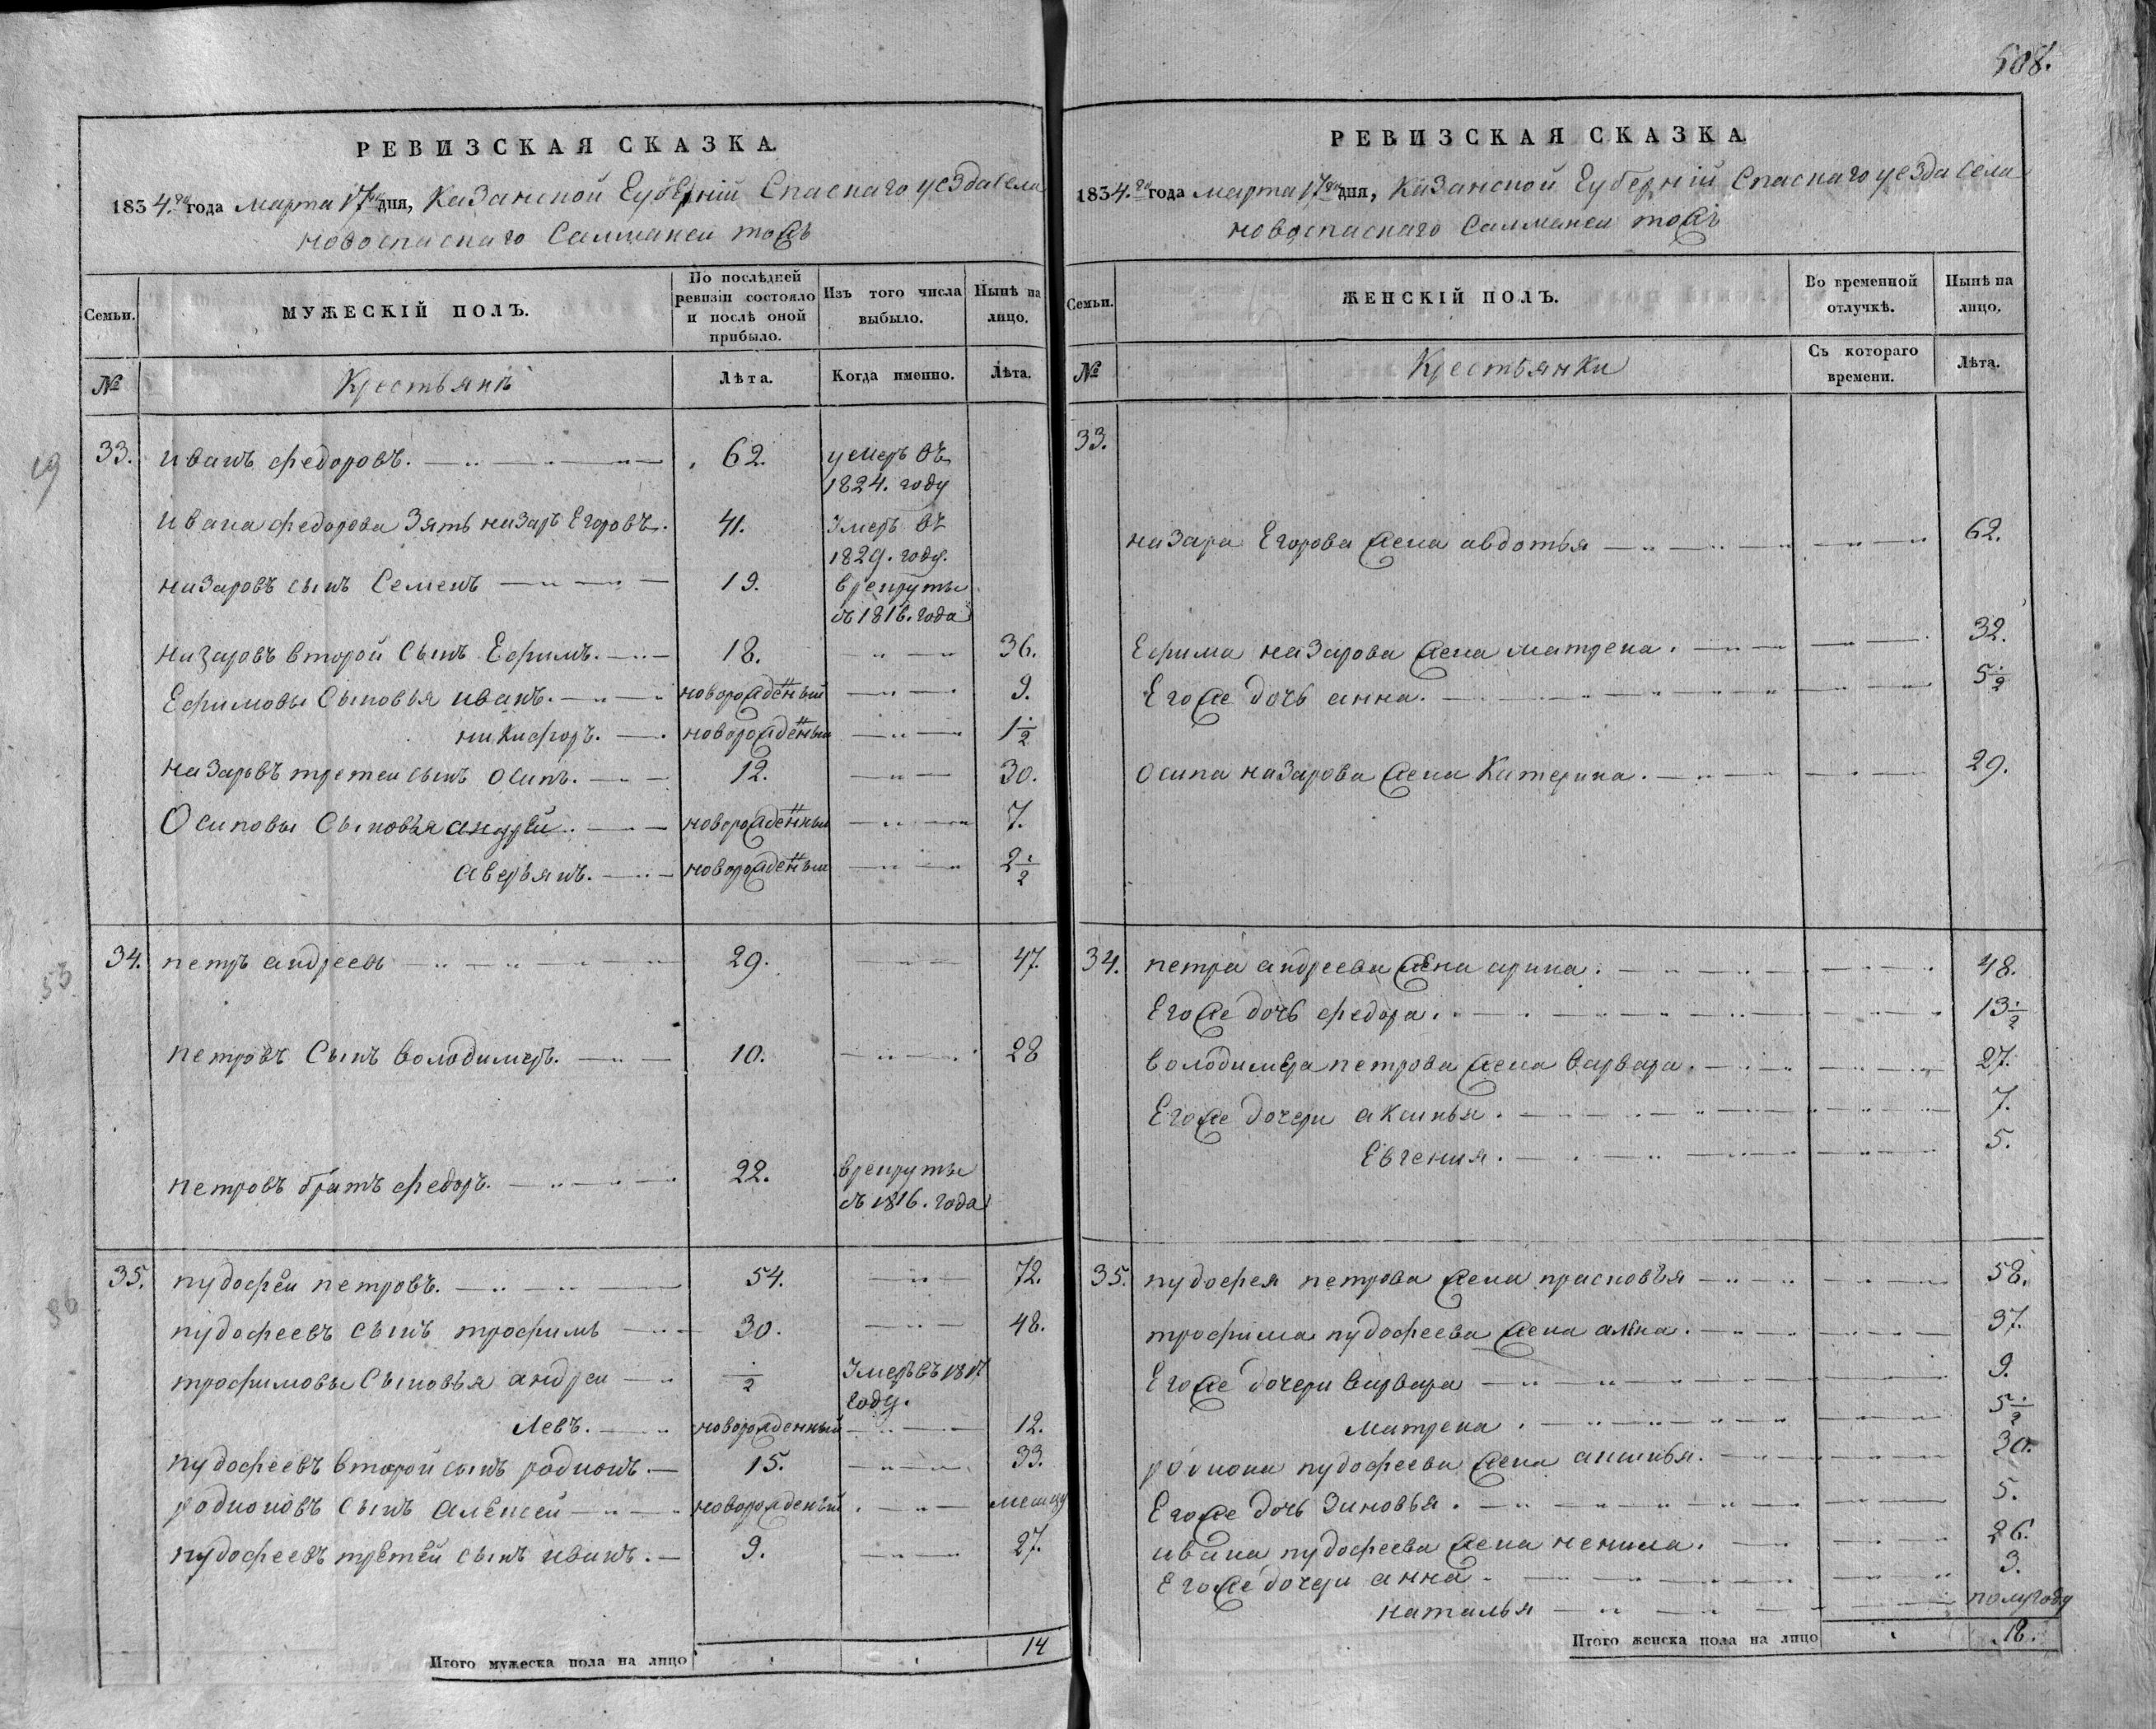 508.
РЕВИЗСКАЯ СКАЗКА.
1834.го года марта 17го дня, Казанской Губерніи Спаскаго уезда села
новоспаскаго Салманеи тожъ
Семьи.
МУЖЕСКІЙ ПОЛЪ.
По послѣдней ревизіи состояло и послѣ оной прибыло.
Изъ того числа выбыло.
Нынѣ на лицо.
№ Крестьянѣ Лѣта. Когда именно. Лѣта.
19
33. иванъ федоровъ. 62. умеръ въ
1824. году
ивана федорова Зять назаръ Егоровъ. 41. Умеръ въ
1829. году.
назаровъ сынъ Семенъ 19. врекруты
съ 1816. года
назаровъ второй Сынъ Ефимъ. 18. 36.
Ефимовы Сыновья иванъ. новорожденый 9.
никифоръ. новорожденыи 1 1/2
назаровъ третеи сынъ осипъ. 12. 30.
Осиповы Сыновья андрей. новорожденныи 7.
аверьянъ. новорожденыи 2 1/2
53
34. петръ андреевъ 29. 47.
петровъ Сынъ володимеръ. 10. 28
петровъ братъ федоръ. 22. врекруты
съ 1816. года
35. пудофеи петровъ. 54. 72.
пудофеевъ сынъ трофимъ 30. 48.
трофимовы Сыновья андреи 1/2 Умеръ въ 1817
году.
Левъ. новорожденный 12.
пудофеевъ второй сынъ родионъ. 15. 33.
родионовъ сынъ Алексеи новорожденый месяцу
пудофеевъ третей сынъ иванъ. 9. 27.
Итого мужеска пола на лицо 14
РЕВИЗСКАЯ СКАЗКА.
1834.го года марта 17го дня, Казанской Губерніи Спаскаго уезда Села
новоспаскаго Салманеи тожъ
Семьи.
ЖЕНСКІЙ ПОЛЪ.
Во временной отлучкѣ.
Нынѣ на лицо.
№ Крестьянки Съ котораго времени. Лѣта.
33.
назара Егорова жена авдотья 62.
Ефима назарова жена матрена. 32.
Егоже дочь анна. 5 1/2
осипа назарова жена Катерина. 29.
34. петра андреева жена арина. 48.
Егоже дочь федора. 13 1/2
володимера петрова жена варвара. 27.
Егоже дочери аксинья. 7.
Евгения. 5.
35. пудофея петрова жена прасковья 58.
трофима пудофеева жена анна. 37.
Егоже дочери варвара 9.
матрена. 5 1/2
родиона пудофеева жена аксинья. 30.
Егоже дочь Зиновья. 5.
ивана пудофеева жена ненила. 26.
Егоже дочери анна. 3.
наталья полугоду
Итого женска пола на лицо 18.